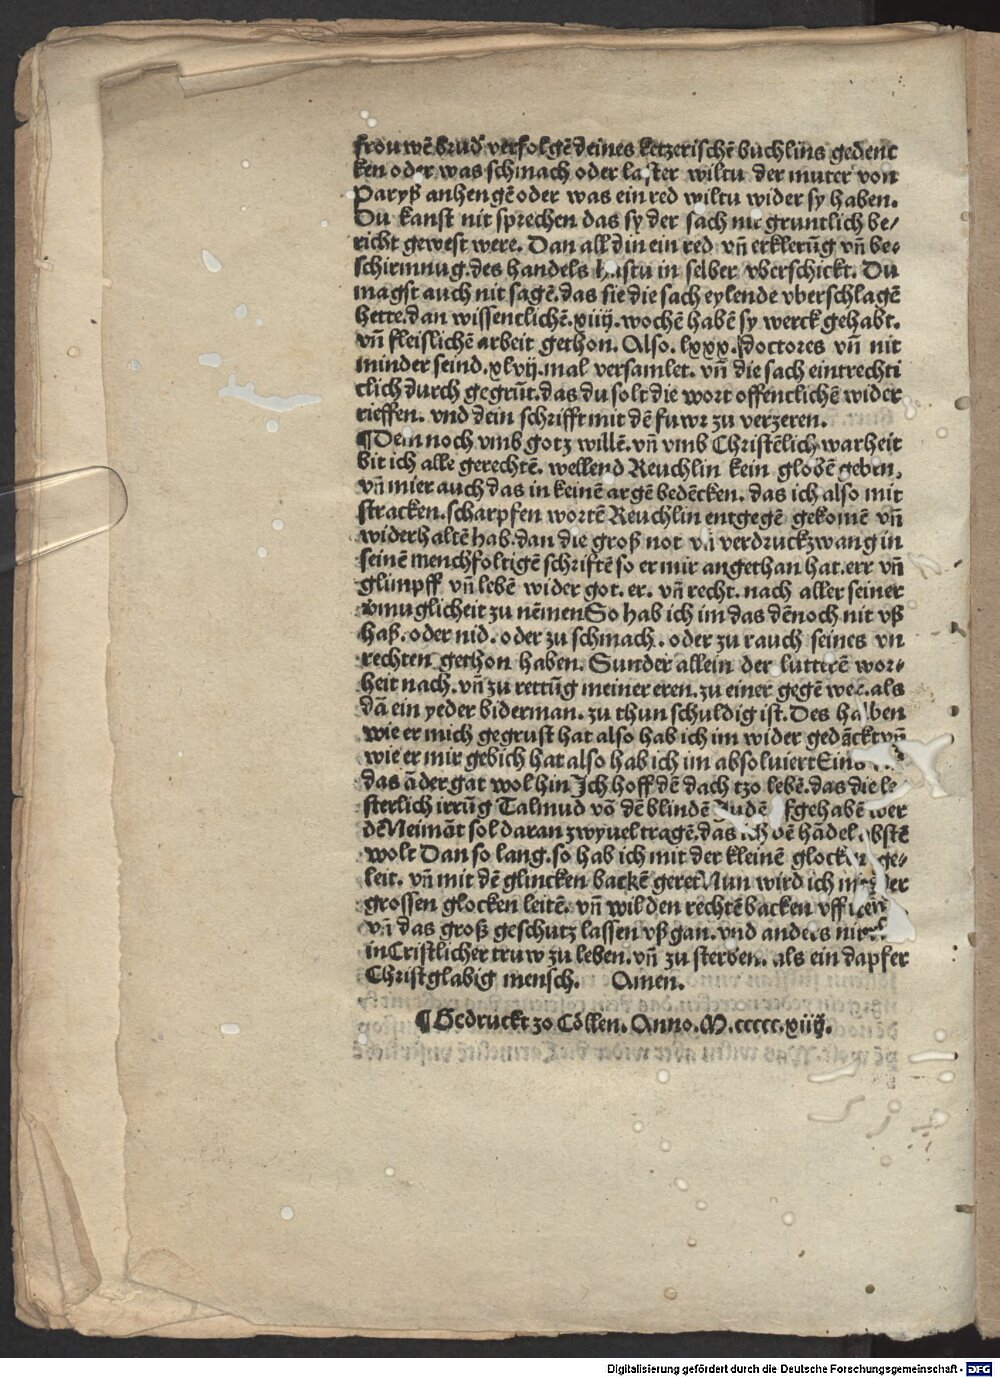 frouwē brud verfolgē deines ketzerischē buchlins gedenc
ken oder was schmach oder laster wiltu der muter von
Paryß anhengē oder was ein red wiltu wider sy haben.
Du kanst nit sprechen das sy der sach nit gruntlich be/
richt gewest were. Dan all din ein red vñ erklerūg vñ be/
schirmnug.des handels hastu in selber vberschickt. Du
magst auch nit sagē.das sie die sach eylende vberschlagē
hette.dan wissentlichē.xiiij.wochē habē sy werck gehabt.
vñ fleislichē arbeit gethon. Also.lxxx.doctores vñ nit
minder seind.xlvij.mal versamlet. vñ die sach eintrechti
clich durch gegrūt.das du solt die wort offentlichē wider
rieffen. vnd dein schrifft mit dē fuwr zu verzeren.
¶Dem noch vmb gotz willē.vñ vmb Christēlich warheit
bit ich alle gerechtē. wellend Reuchlin kein globē geben,
vñ mier auch das in keinē argē bedēcken. das ich also mit
stracken.scharpfen wortē Reuchlin entgegē gekomē vñ
widerhaltē hab.dan die groß not vñ verdruckzwang in
seinē menchfoltigē schriftē so er mir angethan hat.err vñ
glimpff vñ lebē wider got.er. vñ recht. nach aller seiner
vmuglicheit zu nēmen So hab ich im das dēnoch nit vß
haß.oder nid.oder zu schmach.oder zu rauch seines vn
rechten gethon haben. Sunder allein der lutterē wor/
heit nach.vñ zu rettūg meiner eren.zu einer gegē wer.als
dā ein yeder biderman.zu thun schuldig ist.Des halben
wie er mich gegrust hat also hab ich im wider gedāckt vñ
wie er mir gebich hat also hab ich im absoluiert Eins
das āder gat wol hin Ich hoff dē dach tzo lebē.das die le
sterlich irrūg Talmud vō dē blindē Judē fgehabē wer
dē Neimāt sol daran zwyuel tragē.das ich dē hādel abstē
wolt Dan so lang.so hab ich mit der kleinē glocken ge/
leit. vñ mit dē glincken backē geret Nun wird ich mit der
grossen glocken leitē. vñ wil den rechtē backen vff
vñ das groß geschutz lassen vß gan.vnd anders nit
in Cristlicher truw zu leben.vñ zu sterben. als ein dapfer
Christglabig mensch. Amen.
¶Gedruckt zo Cöllen. Anno.M.ccccc.xiiij.
Digitalisierung gefördert durch die Deutsche Forschungsgemeinschaft - DFG